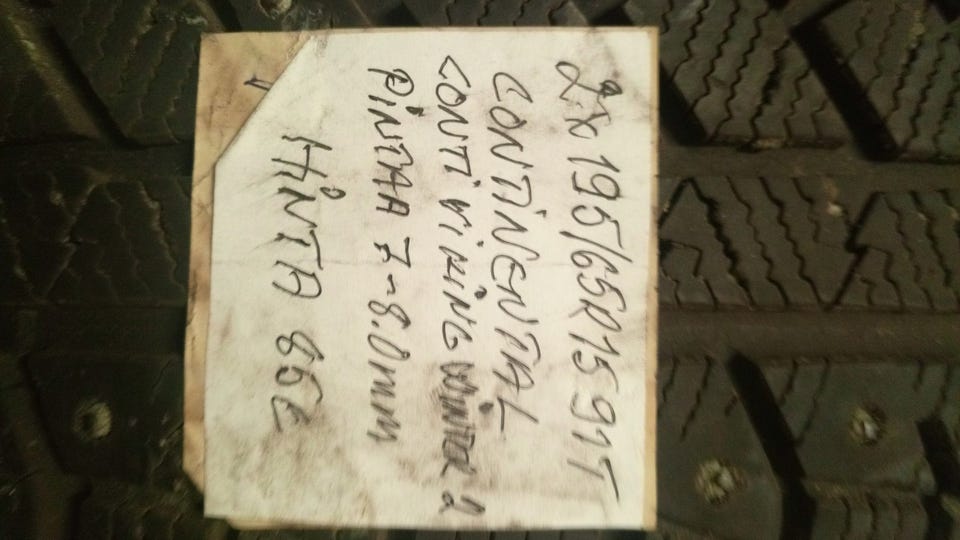 2x 195/65R15 91T
CONTINENTAL
CONTI VIKING WINTER 2
PINTAA 7-8.0mm
HINTA 85E